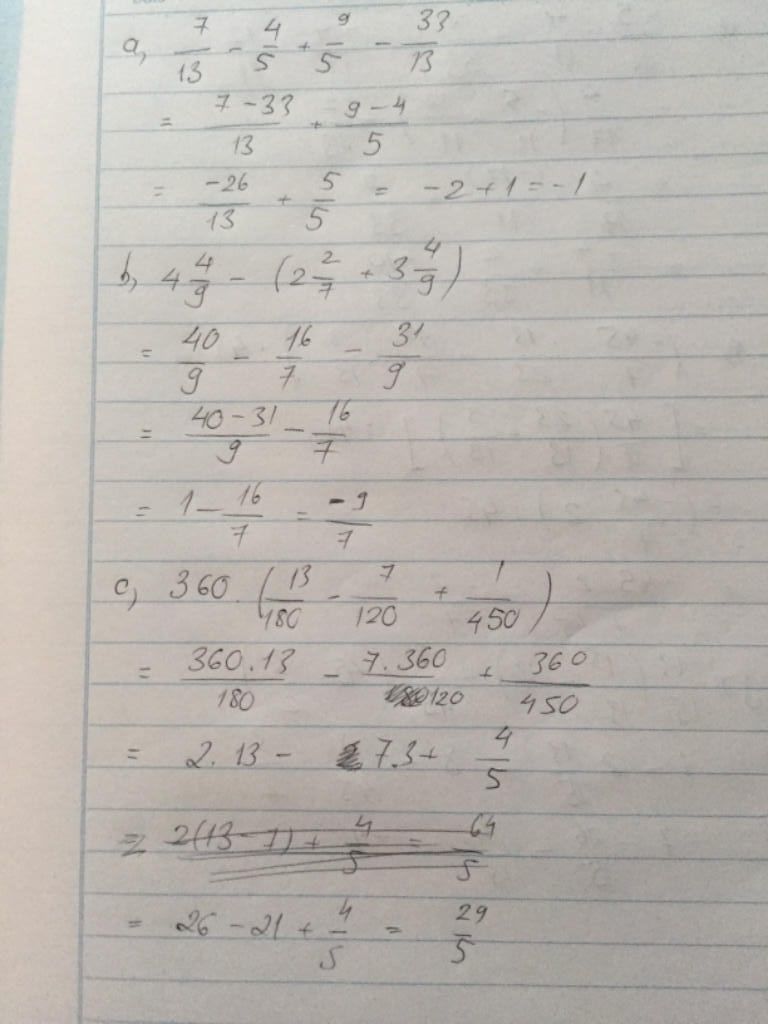 a, 7/13 - 4/5 + 9/5 - 33/13
= (7-33)/13 + (9-4)/5
= -26/13 + 5/5 = -2+1 = -1
b, 4 4/9 - (2 2/7 + 3 4/9)
= 40/9 - 16/7 - 31/9
= (40-31)/9 - 16/7
= 1 - 16/7 = -9/7
c, 360.(13/180 - 7/120 + 1/450)
= 360.13/180 - 7.360/120 + 360/450
= 2.13 - 7.3 + 4/5
= 2(13-7) + 4/5 = 64/5
= 26 - 21 + 4/5 = 29/5